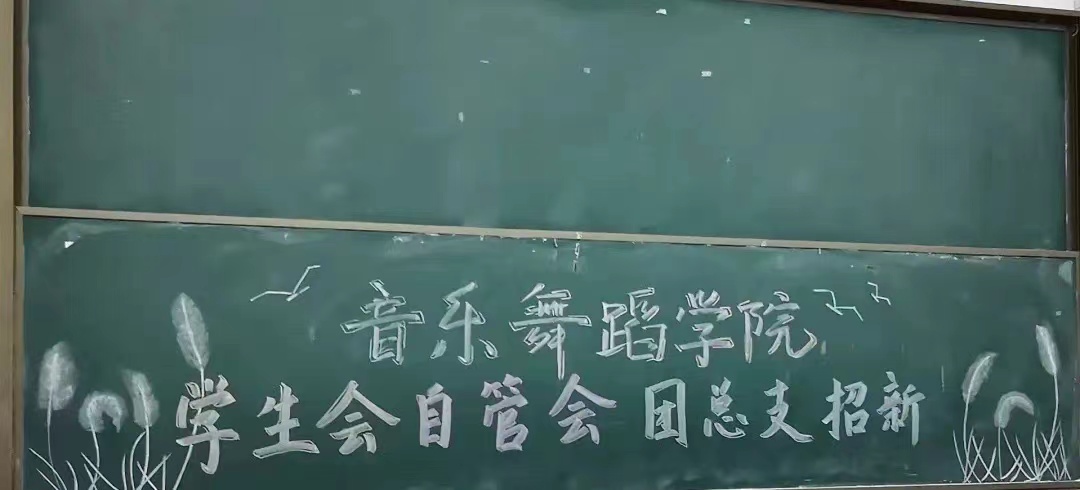 音乐舞蹈学院
学生会自管会 团总支招新